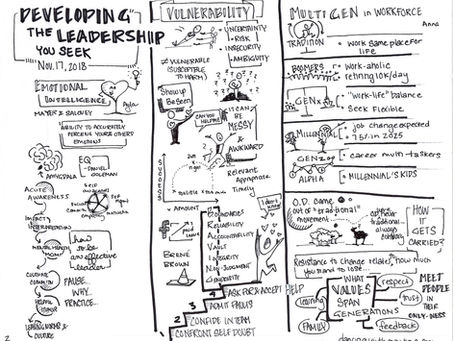 DEVELOPING
THE LEADERSHIP
YOU SEEK
NOV. 17, 2018
EMOTIONAL
INTELLIGENCE
MAYER & SALOVEY
ABILITY TO ACCURATELY
PERCEIVE YOUR & OTHERS'
EMOTIONS
AMYGDALA
EQ
DANIEL
GOLEMAN
ACUTE
AWARENESS
SELF AWARENESS
IMPACT
INTERPRETATION
how to
be an
effective
leader
PAUSE...
WHY...
PRACTICE...
CULTURE
2
VULNERABILITY
UNCERTAINTY
RISK
INSECURITY
AMBIGUITY
VULNERABLE
(SUSCEPTIBLE
TO HARM)
Show up
Be seen
CAN YOU
HELP ME?
IT CAN
BE
MESSY
&
AWKWARD
Relevant
Appropriate
Timely
SUCCESS
AMOUNT
BRENÉ
BROWN
BOUNDARIES
RELIABILITY
ACCOUNTABILITY
VAULT
INTEGRITY
NON-JUDGMENT
GENEROSITY
4 ASK FOR & ACCEPT HELP
3 ADMIT FAILURES
2 CONFIDE IN TEAM
1 CONFRONT SELF DOUBT
MULTIGEN IN WORKFORCE
Anna
TRADITION
work same place for
life
BOOMERS
work-aholic
retiring 10K/day
GENX
"work-life" balance
Seek flexible
MILLENNIAL
job change expected
75% in 2025
GENZ
career multi-taskers
ALPHA
MILLENNIAL'S KIDS
O.D. came
out of "traditional"
movement
HOW
IT
GETS
CARRIED?
Resistance to change relates, how much
you stand to lose...
WHAT
VALUES
SPAN
GENERATIONS
respect
trust
feedback
learning
FAMILY
MEET
PEOPLE
IN
THEIR
ONLY-NESS